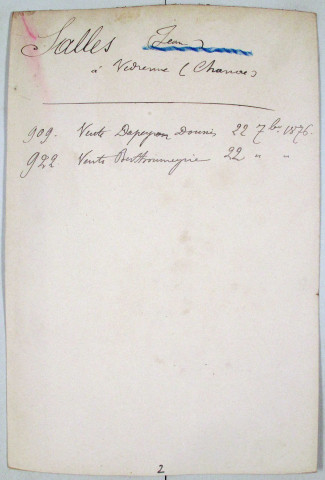 Salles Jean
à Vedrenne (Chanac)
909. Vente Dapeyron Denis 22 7bre 1876.
922 Vente Berthoumeyrie 22 " "
2